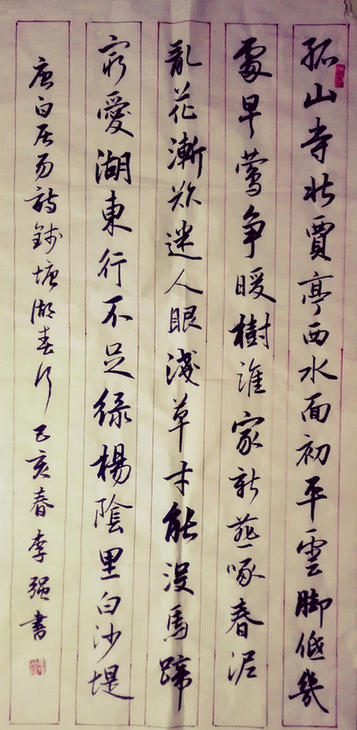 孤山寺北賈亭西水面初平雲脚低幾
處早鶯争暖樹誰家新燕啄春泥
亂花漸欲迷人眼淺草才能没馬蹄
最愛湖東行不足緑楊陰里白沙堤
唐白居易詩錢塘湖春行 己亥春李强書